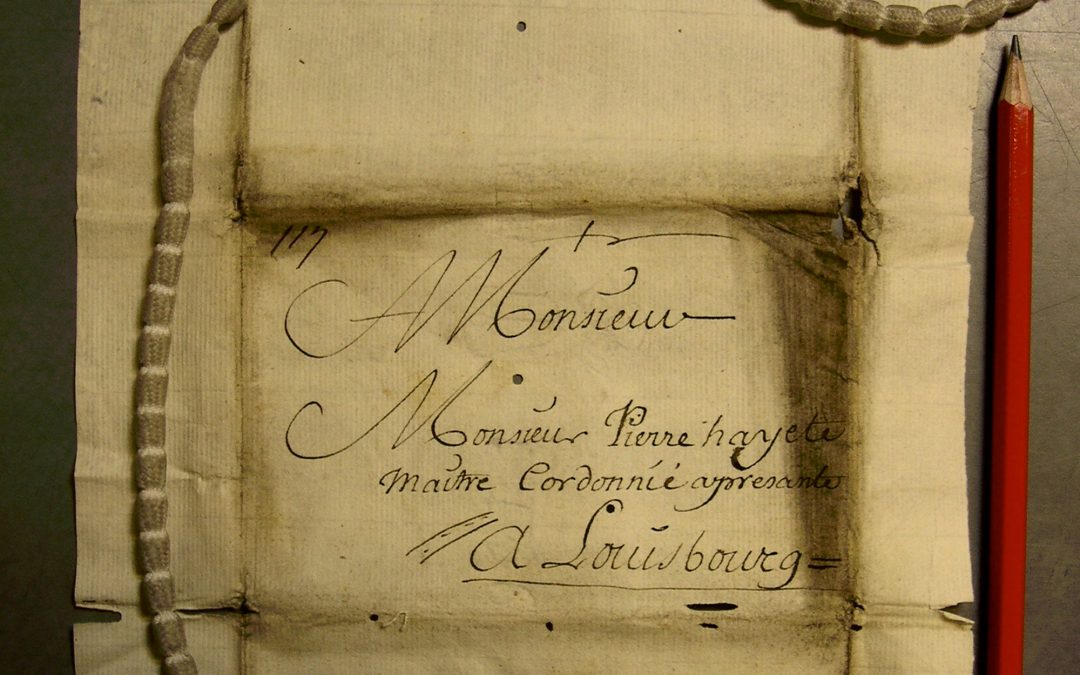 117
A Monsieur
Monsieur Pierre hayete
Maitre Cordonnié apresante
A Louisbourg =